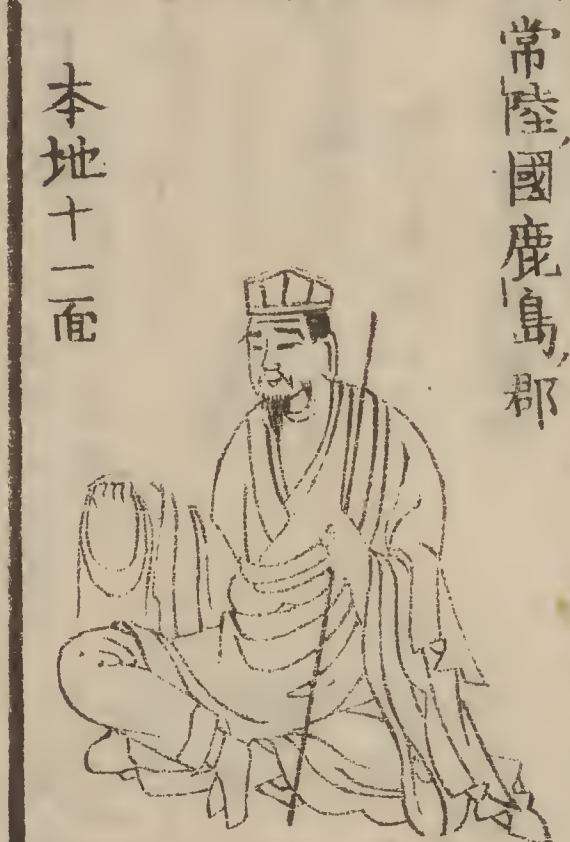 常陸國鹿島郡
本地十一面